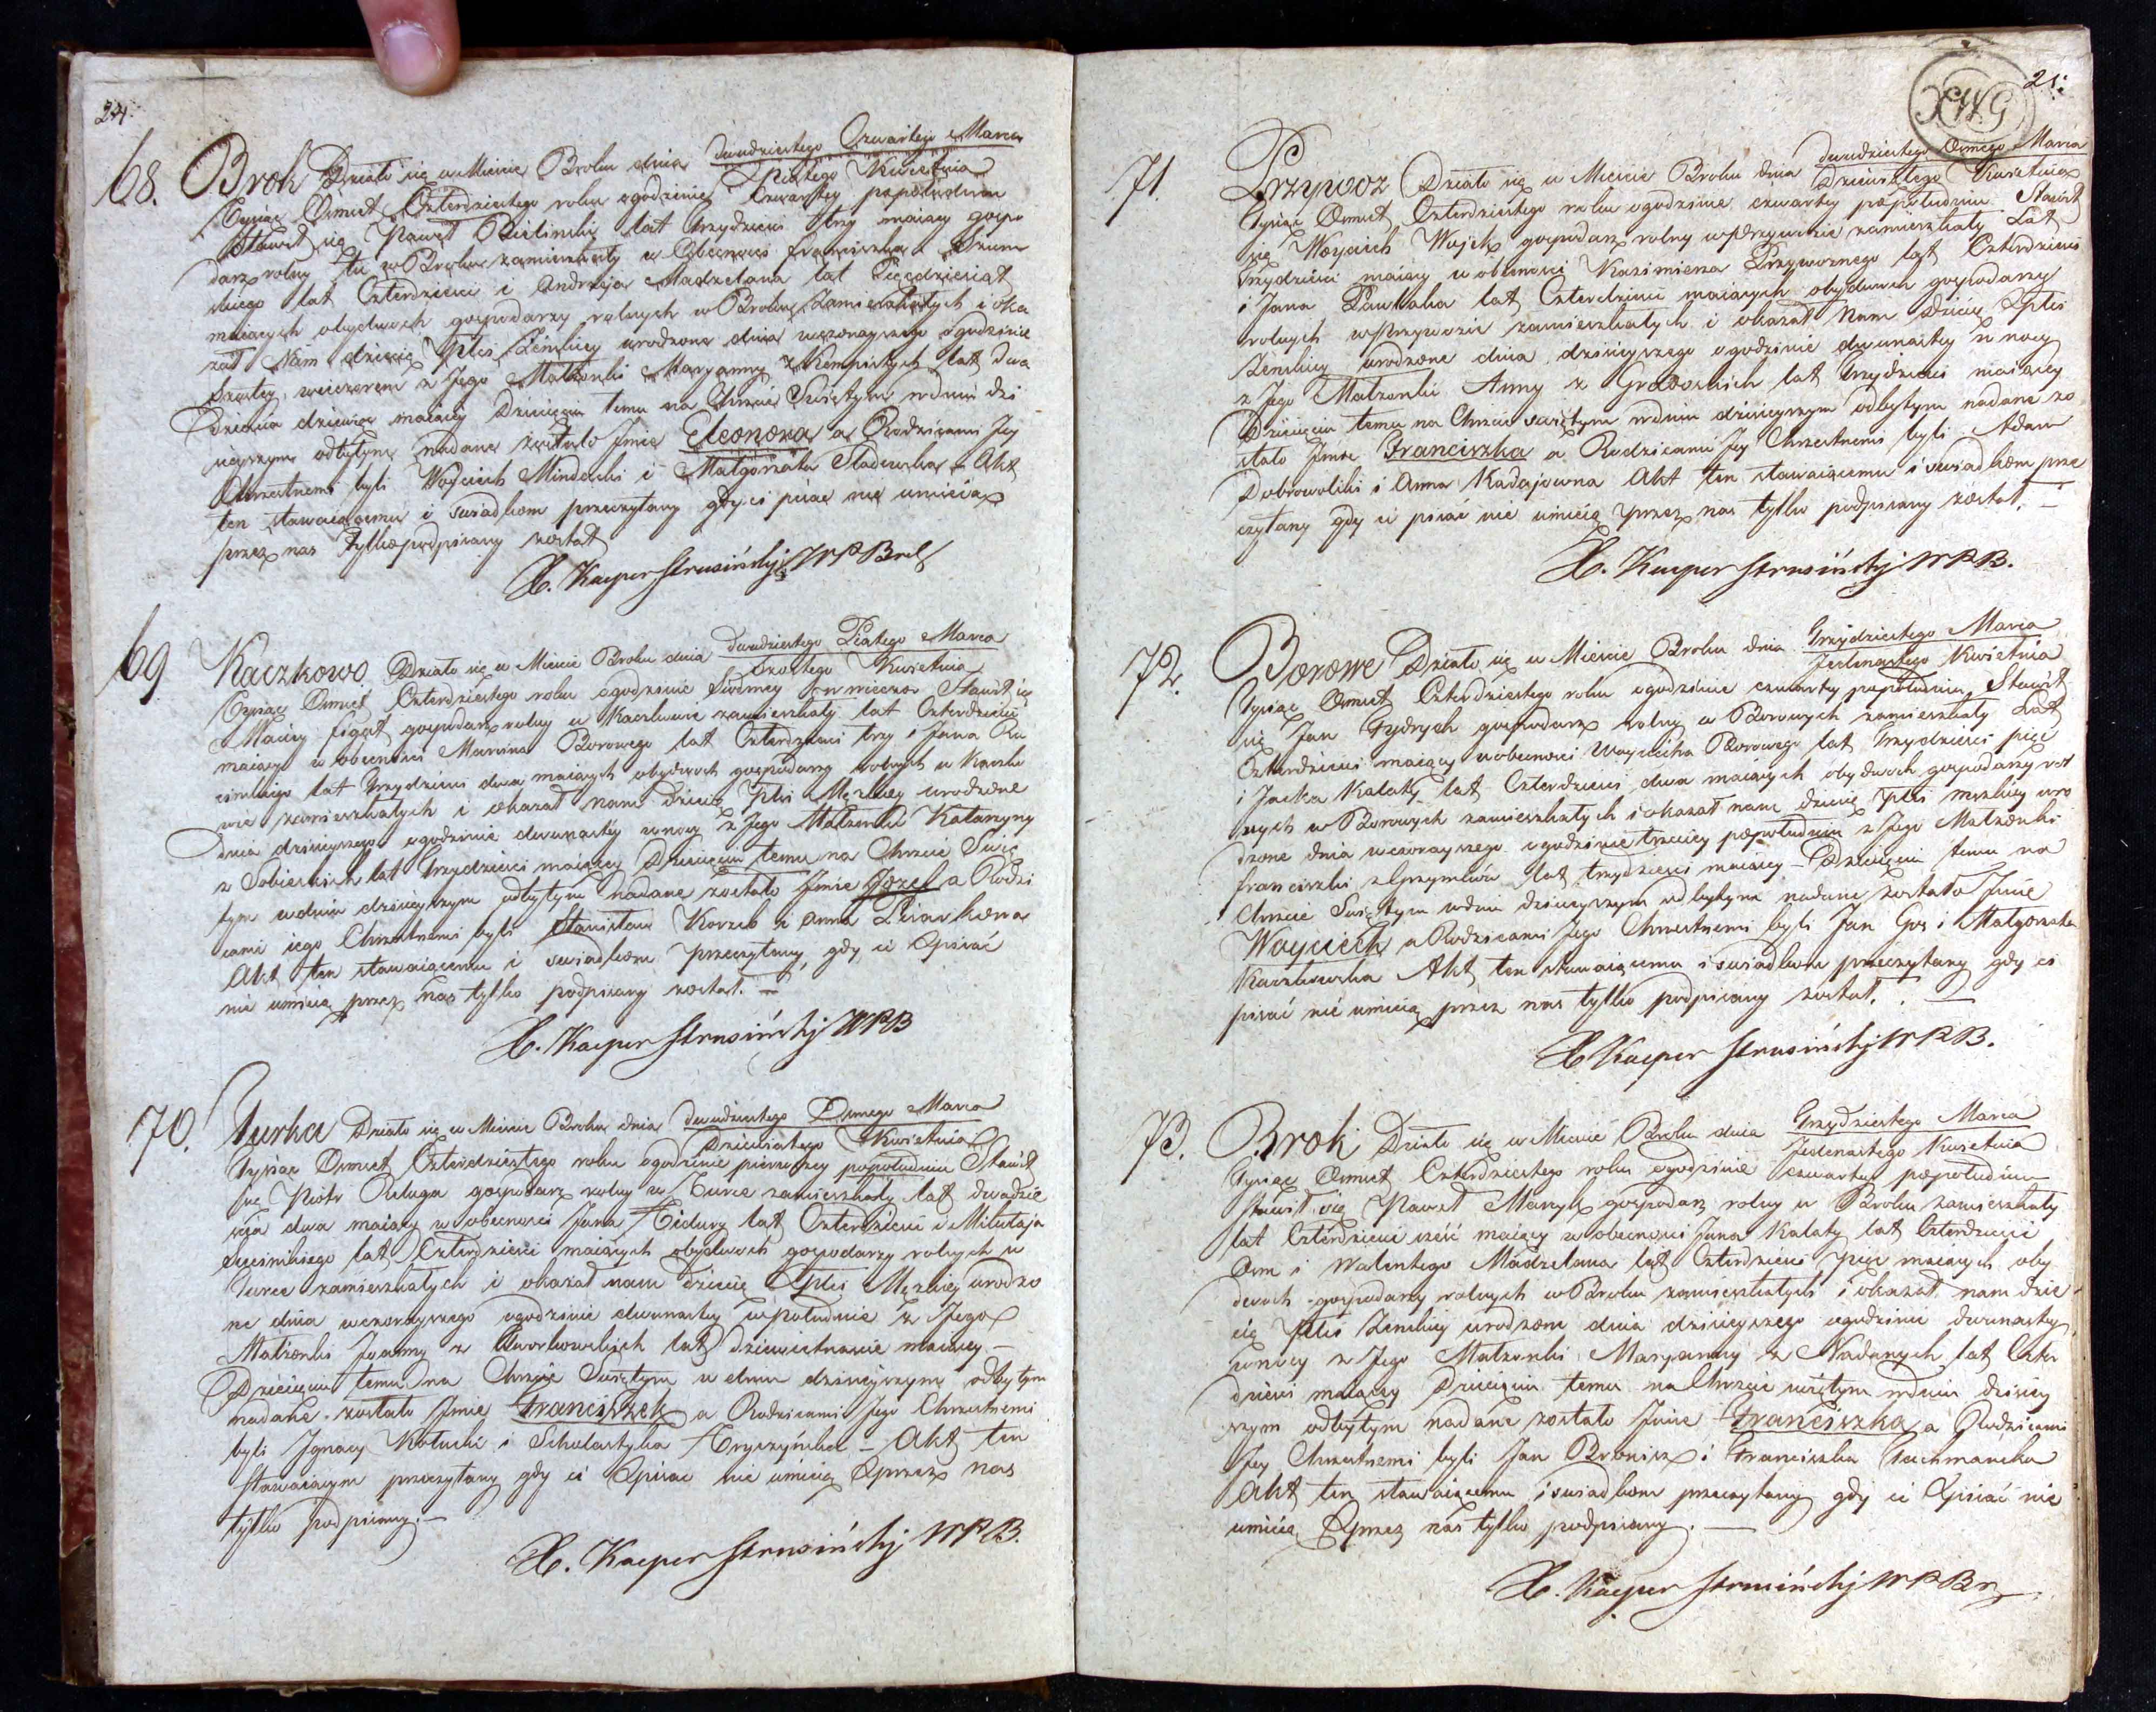 24.
68. Brok Działo się w Mieście Broku dnia Dwudziestego Czwartego Marca
Piątego Kwietnia
Tysiąc Osmset Czterdziestego roku o godzinie Czwartey popołudniu
Stawił się Paweł Bieliński lat trzydzieści trzy maiący gospo
darz rolny tu w Broku zamieszkały w Obecności Franciszka
skiego lat Czterdzieści i Andrzeja Madzelana lat Pięćdziesiąt
maiących obydwoch gospodarzy rolnych w Broku Zamieszkałych i oka
zał Nam dziecię płci Żeńskiey urodzone dnia wczorayszego o godzinie
szostey wieczorem z Jego Małżonki Maryanny z Kempistych lat dwa
dzieścia dziewięć maiącey Dziecięciu temu na Chrzcie Swiętym w dniu dzi
sieyszym odbytym nadane zostało Jmie Eleonora a Rodzicami Jey
Chrzestnemi byli Woyciech Mindacki i Małgorzata Sladewska - Akt
ten stawaiącemu i swiadkom przeczytany gdy ci pisac nie umieią
przez nas tylko podpisany został
X. Kacper Strusiński WPBrok
69 Kaczkowo Działo się w Mieście Broku dnia Dwudziestego Piątego Marca
Szostego Kwietnia
Tysiąc Osmset Czterdziestego roku o godzinie Siodmey w wieczor Stawił się
Maciey Figat gospodarz rolny w Kaczkowie zamieszkały lat Czterdzieści
maiący w obecności Marcina Borowego lat Czterdzieści trzy i Jana Ra
cinskiego lat trzydzieści dwa maiących obydwoch gospodarzy rolnych w Kaczko
wie zamieszkałych i okazał nam dziecię płci Męzkiey urodzone
dnia dzisieyszego o godzinie dwunastey w nocy z Jego Małżonki Katarzyny
z Sobieskich lat trzydzieści maiącey Dziecięciu temu na Chrzcie Swię
tym w dniu dzisieyszym odbytym nadane zostało Jmie Jozef a Rodzi
cami iego Chrzestnemi byli Stanisław Korzeb i Anna Pisarkowna
Akt ten stawaiącemu i swiadkom przeczytany, gdy ci pisać
nie umieią przez nas tylko podpisany został. -
X. Kacper Strusiński WPB
70. Turka Działo się w Mieście Broku dnia Dwudziestego Osmego Marca
Dziewiątego Kwietnia
Tysiąc Osmset Czterdziestego roku o godzinie pierwszey popołudniu Stawił
się Piotr Deluga gospodarz rolny w Turce zamieszkały lat dwadzie
scia dwa maiący w obecności Jana Zidury lat Czterdzieści i Mikołaja
lat Czterdzieści maiących obydwoch gospodarzy rolnych w
Turce zamieszkałych i okazał nam dziecię płci Męzkiey urodzo
ne dnia wczorayszego o godzinie dwunastey w południe z Jego
Małżonki Joanny z lat dziewietnascie maiącey -
Dziecięciu temu na Chrzcie Swiętym w dniu dzisieyszym odbytym
nadane zostało Jmie Franciszek a Rodzicami Jego Chrzestnemi
byli Jgnacy Kołucki i Scholastyka - Akt ten
stawaiącym przeczytany gdy ci pisac nie umieią przez nas
tylko podpisany. -
X. Kacper Strusiński WPB.
21.
XWG
71. Przywoz Działo się w Mieście Broku dnia Dwudziestego Osmego Marca
Dziewiątego Kwietnia
Tysiąc Osmset Czterdziestego roku o godzinie czwartey popołudniu Stawił
się Woyciech Woycik gospodarz rolny w Przywozie zamieszkały Lat
Trzydzieści maiący w obecności Kazimierza Przywoznego lat Czterdzieści
i Jana Pawlaka lat Czterdzieści maiących obydwoch gospodarzy
rolnych w Przywozie zamieszkałych i okazał Nam Dziecię płci
Żenskiey urodzone dnia dzisieyszego o godzinie dwunastey w nocy
z Jego Małzonki Anny z lat trzydzieści maiącey
Dziecięciu temu na Chrzcie swiętym w dniu dzisieyszym odbytym nadane zo
stało Jmie Franciszka a Rodzicami Jey Chrzestnemi byli Adam
Dobrowolski i Anna Kadajowna Akt ten stawaiącemu i swiadkom prze
czytany gdy ci pisać nie umieią przez nas tylko podpisany został. -
X. Kacper Strusiński WPB.
72. Borowe Działo się w Mieście Broku dnia Trzydziestego Marca
Jedenastego Kwietnia
Tysiąc Osmset Czterdziestego roku o godzinie czwartey popołudniu Stawił
się Jan Fydrych gospodarz rolny w Borowych zamieszkały Lat
Czterdzieści maiący w obecności Woyciecha Borowego lat trzydzieści pięć
i Jacka Kalaty lat Czterdzieści dwa maiących obydwoch gospodarzy rol
nych w Borowych zamieszkałych i okazał nam dziecię płci męzkiey uro
dzone dnia wczorayszego o godzinie trzeciey popołudniu z Jego Małzonki
Franciszki z lat trzydzieści maiącey - Dziecięciu temu na
Chrzcie Swiętym w dniu dzisieyszym odbytym nadane zostało Jmie
Woyciech a Rodzicami Jego Chrzestnemi byli Jan Gos i Małgorzata
Kaczkowska Akt ten stawaiącemu i swiadkom przeczytany gdy ci
pisać nie umieią przez nas tylko podpisany został. -
X Kacper Strusiński WPB.
73. Brok Działo się w Mieście Broku dnia Trzydziestego Marca
Jedenastego Kwietnia
Tysiąc Osmset Czterdziestego roku o godzinie czwartey popołudniu
stawił się Paweł Marcyk gospodarz rolny w Broku zamieszkały
lat Czterdzieści sześć maiący w obecności Jana Kalaty lat Czterdzieści
Osm i Walentego Madzelana lat Czterdzieści pięć maiących oby
dwoch gospodarzy rolnych w Broku zamieszkałych i okazał nam dzie
cię płci Żenskiey urodzone dnia dzisieyszego o godzinie dwunastey
w nocy z Jego Małzonki Maryanny z Nadanych lat Czter
dzieści maiącey Dziecięciu temu na Chrzcie swiętym w dniu dzisiey
szym odbytym nadane zostało Jmie Franciszka a Rodzicami
Jey Chrzestnemi byli Jan Bronisz i Franciszka Tuchmanska
Akt ten stawaiącemu i swiadkom przeczytany gdy ci pisać nie
umieią przez nas tylko podpisany. -
X. Kacper Strusiński WPBr